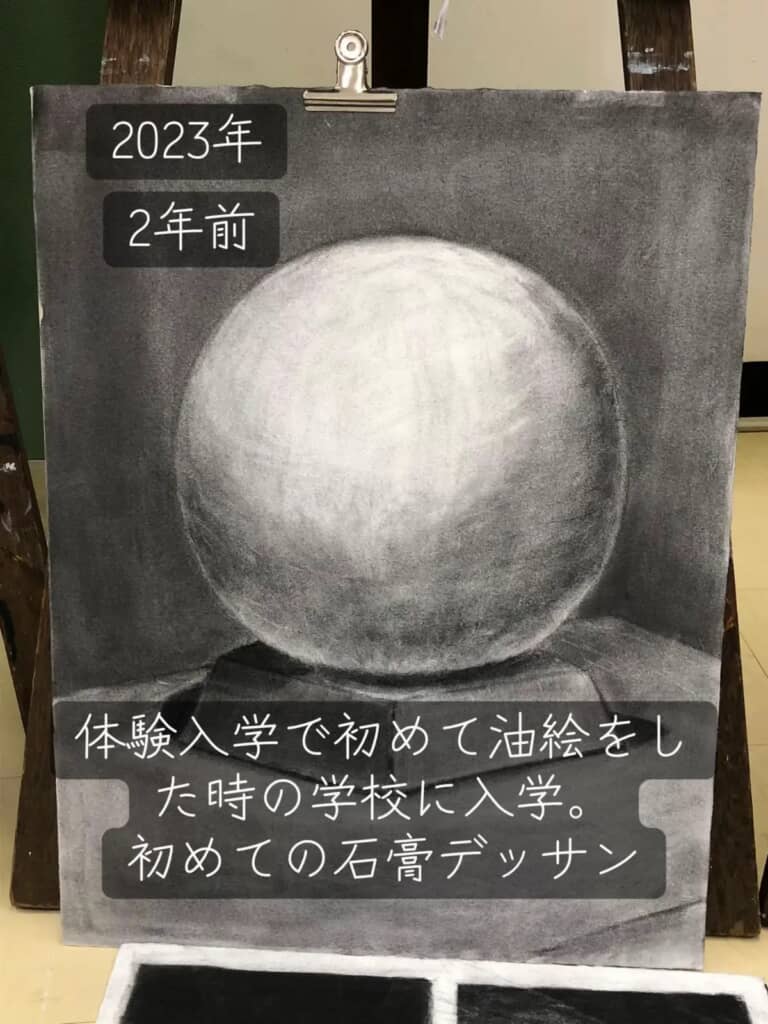 2023年
2年前
体験入学で初めて油絵をし
た時の学校に入学。
初めての石膏デッサン